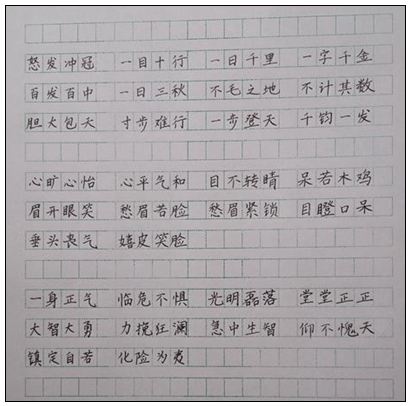 怒发冲冠 一目十行 一日千里 一字千金
百发百中 一日三秋 不毛之地 不计其数
胆大包天 寸步难行 一步登天 千钧一发
心旷心怡 心平气和 目不转睛 呆若木鸡
眉开眼笑 愁眉苦脸 愁眉紧锁 目瞪口呆
垂头丧气 嬉皮笑脸
一身正气 临危不惧 光明磊落 堂堂正正
大智大勇 力挽狂澜 急中生智 仰不愧天
镇定自若 化险为夷